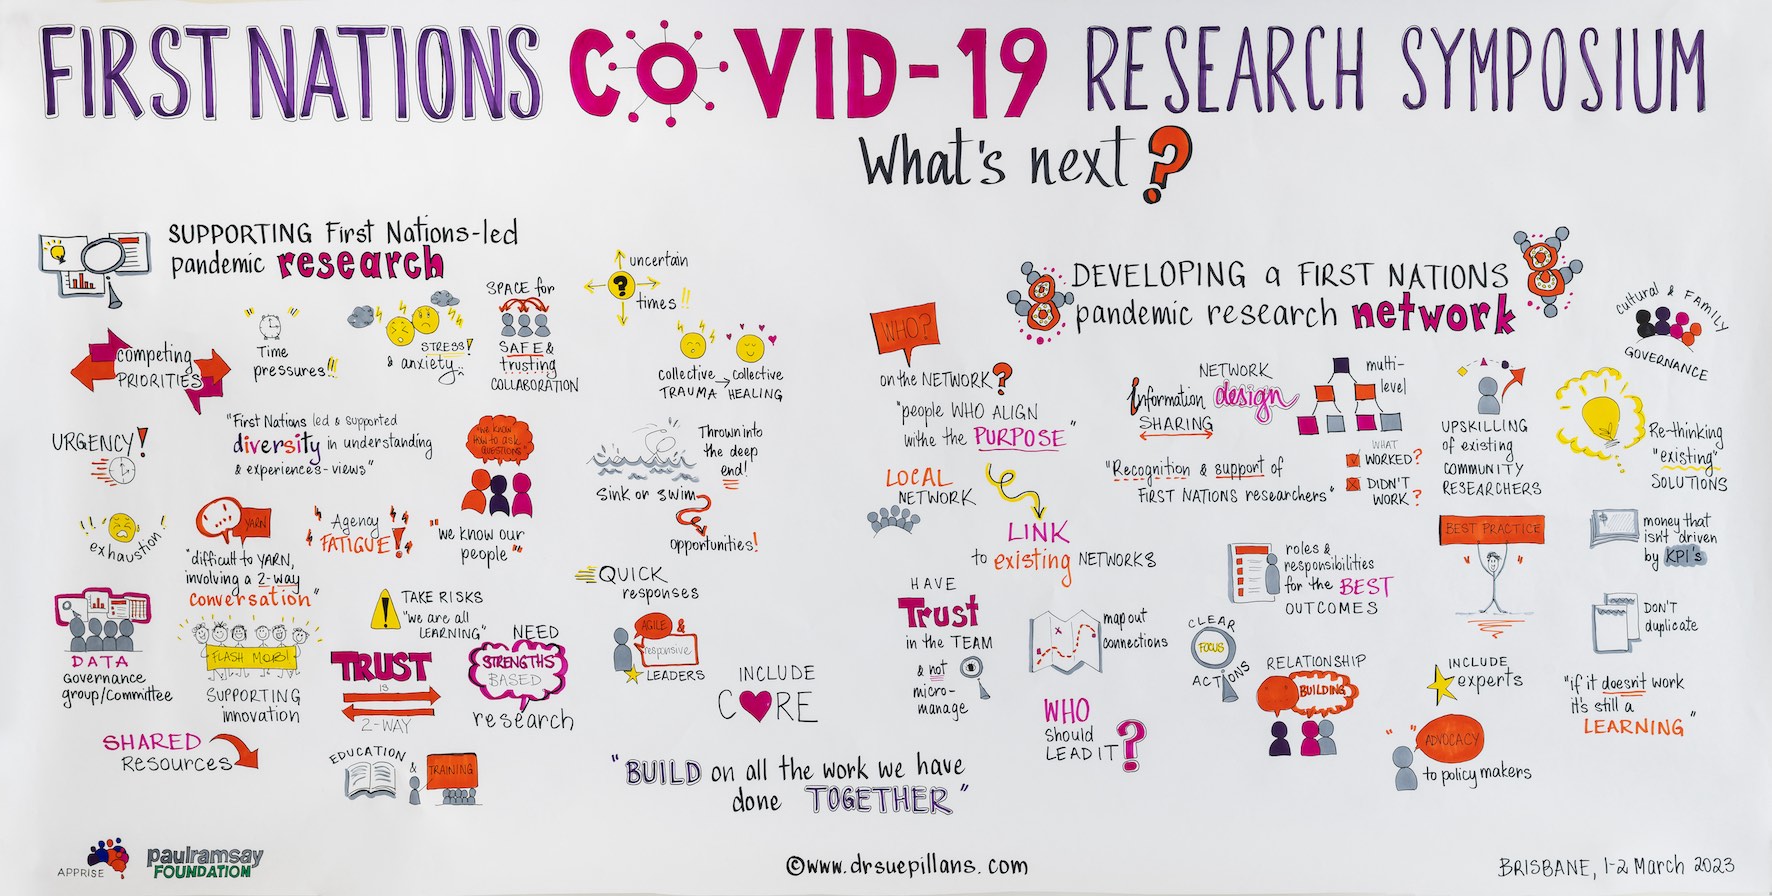 FIRST NATIONS COVID-19 RESEARCH SYMPOSIUM
What's next?
SUPPORTING First Nations-led
pandemic research
competing
PRIORITIES
Time
pressures!!
STRESS!
& anxiety
SPACE for
SAFE &
trusting
COLLABORATION
uncertain
?
times!!
collective
TRAUMA
collective
HEALING
URGENCY!
"First Nations led & supported
diversity in understanding
& experiences-views"
"We know
how to ask
QUESTIONS"
"we know our
people"
Thrown into
the deep
end!
Sink or swim
opportunities!
exhaustion!
YARN
"difficult to YARN,
involving a 2-way
conversation"
Agency
FATIGUE!
QUICK
responses
DATA
Governance
group/committee
FLASH MOB!
SUPPORTING
innovation
TAKE RISKS
"we are all
LEARNING"
TRUST
IS
2-WAY
NEED
STRENGTHS
BASED
research
AGILE &
responsive
LEADERS
INCLUDE
CORE
SHARED
Resources
EDUCATION
&
TRAINING
"BUILD on all the work we have
done TOGETHER"
DEVELOPING a FIRST NATIONS
pandemic research network
WHO?
on the NETWORK?
"people WHO ALIGN
withe the PURPOSE"
LOCAL
NETWORK
LINK
to existing NETWORKS
Information
SHARING
NETWORK
design
multi-
level
"Recognition & support of
FIRST NATIONS researchers"
WHAT
WORKED?
DIDN'T
WORK?
UPSKILLING
of existing
COMMUNITY
RESEARCHERS
Cultural & FAMILY
GOVERNANCE
Re-thinking
"existing"
SOLUTIONS
HAVE
Trust
in the TEAM
& not
micro-
manage
map out
connections
WHO
should
LEAD IT?
roles &
responsibilities
for the BEST
OUTCOMES
CLEAR
FOCUS
ACTIONS
RELATIONSHIP
BUILDING
BEST PRACTICE
INCLUDE
experts
"ADVOCACY"
to policy makers
money that
isn't driven
by KPI's
DON'T
duplicate
"if it doesn't work
it's still a
LEARNING"
APPRISE
paulramsay
FOUNDATION
©www.drsuepillans.com
BRISBANE, 1-2 March 2023